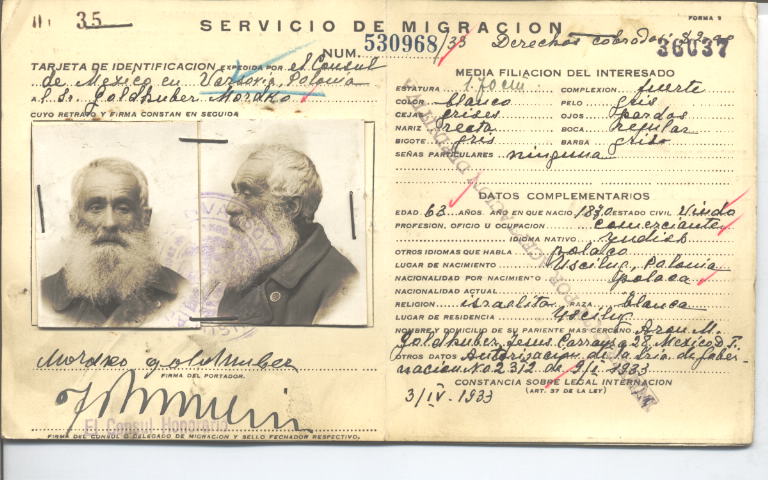 35
SERVICIO DE MIGRACION
FORMA 5
NUM. 530968/33 Derechos cobrados
36037
TARJETA DE IDENTIFICACION EXPEDIDA POR el Consul
de Mexico en Varsovia, Polonia
a l Sr. Goldhuber Mordko
CUYO RETRATO Y FIRMA CONSTAN EN SEGUIDA
Mordko Goldhuber
FIRMA DEL PORTADOR.
El Consul Honorario
FIRMA DEL CONSUL O DELEGADO DE MIGRACION Y SELLO FECHADOR RESPECTIVO.
MEDIA FILIACION DEL INTERESADO
ESTATURA 1.70 cm. COMPLEXION fuerte
COLOR blanco PELO gris
CEJAS grises OJOS pardos
NARIZ recta BOCA regular
BIGOTE gris BARBA
SEÑAS PARTICULARES ninguna
DATOS COMPLEMENTARIOS
EDAD 63 AÑOS. AÑO EN QUE NACIO 1870 ESTADO CIVIL Viudo
PROFESION, OFICIO U OCUPACION comerciante
IDIOMA NATIVO yudish
OTROS IDIOMAS QUE HABLA polaco
LUGAR DE NACIMIENTO Uscilug, Polonia
NACIONALIDAD POR NACIMIENTO polaca
NACIONALIDAD ACTUAL
RELIGION israelita RAZA blanca
LUGAR DE RESIDENCIA Uscilug
NOMBRE Y DOMICILIO DE SU PARIENTE MAS CERCANO Aron M.
Goldhuber, Jesus Carranza 28, Mexico D.F.
OTROS DATOS Autorizacion de la Sria de Gober-
nacion No 2312 de 9/I 1933
CONSTANCIA SOBRE LEGAL INTERNACION
(ART. 37 DE LA LEY)
3/IV. 1933